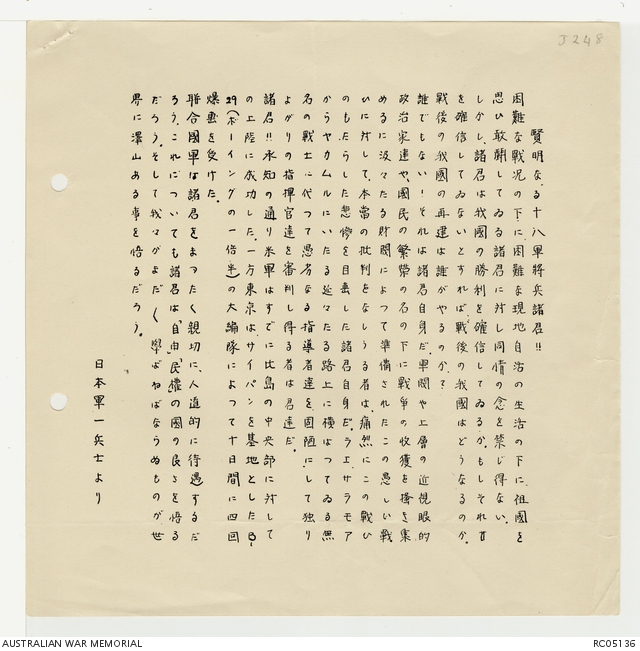 J248
賢明なる十八軍將兵諸君!!
困難な戦况の下に、困難な現地自活の生活の下に、祖國を
思ひ敢闘してゐる諸君に対し同情の念を禁じ得ない。
しかし、諸君は我國の勝利を確信してゐるか。もしそれ
を確信してゐないとすれば、戦後の我國はどうなるのか。
戦後の我國の再建は誰がやるのか?
誰でもない!それは諸君自身だ。軍閥や上層の近視眼的
政治家達や、國民の繁榮の名の下に戦爭の収獲を掻き集
めるに汲々たる財閥によつて準備されたこの愚しい戦
ひに対して、本當の批判をなしうる者は、痛烈にこの戦ひ
のもたらした悲惨を目撃した諸君自身だ。ラエ、サラモア
からヤカムルにいたる延々たる路上に横はつてゐる無
名の戦士に代つて愚劣なる指導者達を
よがりの指揮官達を審判し得る者は君達だ。
諸君!!承知の通り米軍はすでに比島の中央部に対して
の上陸に成功した。一方東京は、サイパンを基地としたB-
29(ボーイングの一倍半)の大編隊によつて十日間に四回
爆撃を受けた。
聯合國軍は諸君をまつたく親切に、人道的に待遇するだ
ろう。これについても諸君は、自由「民權の國の良さを悟る
だらう。そして我々がまだ〱學ばねばならぬものが世
界に澤山ある事を悟るだらう。
日本軍一兵士より
AUSTRALIAN WAR MEMORIAL
RC05136